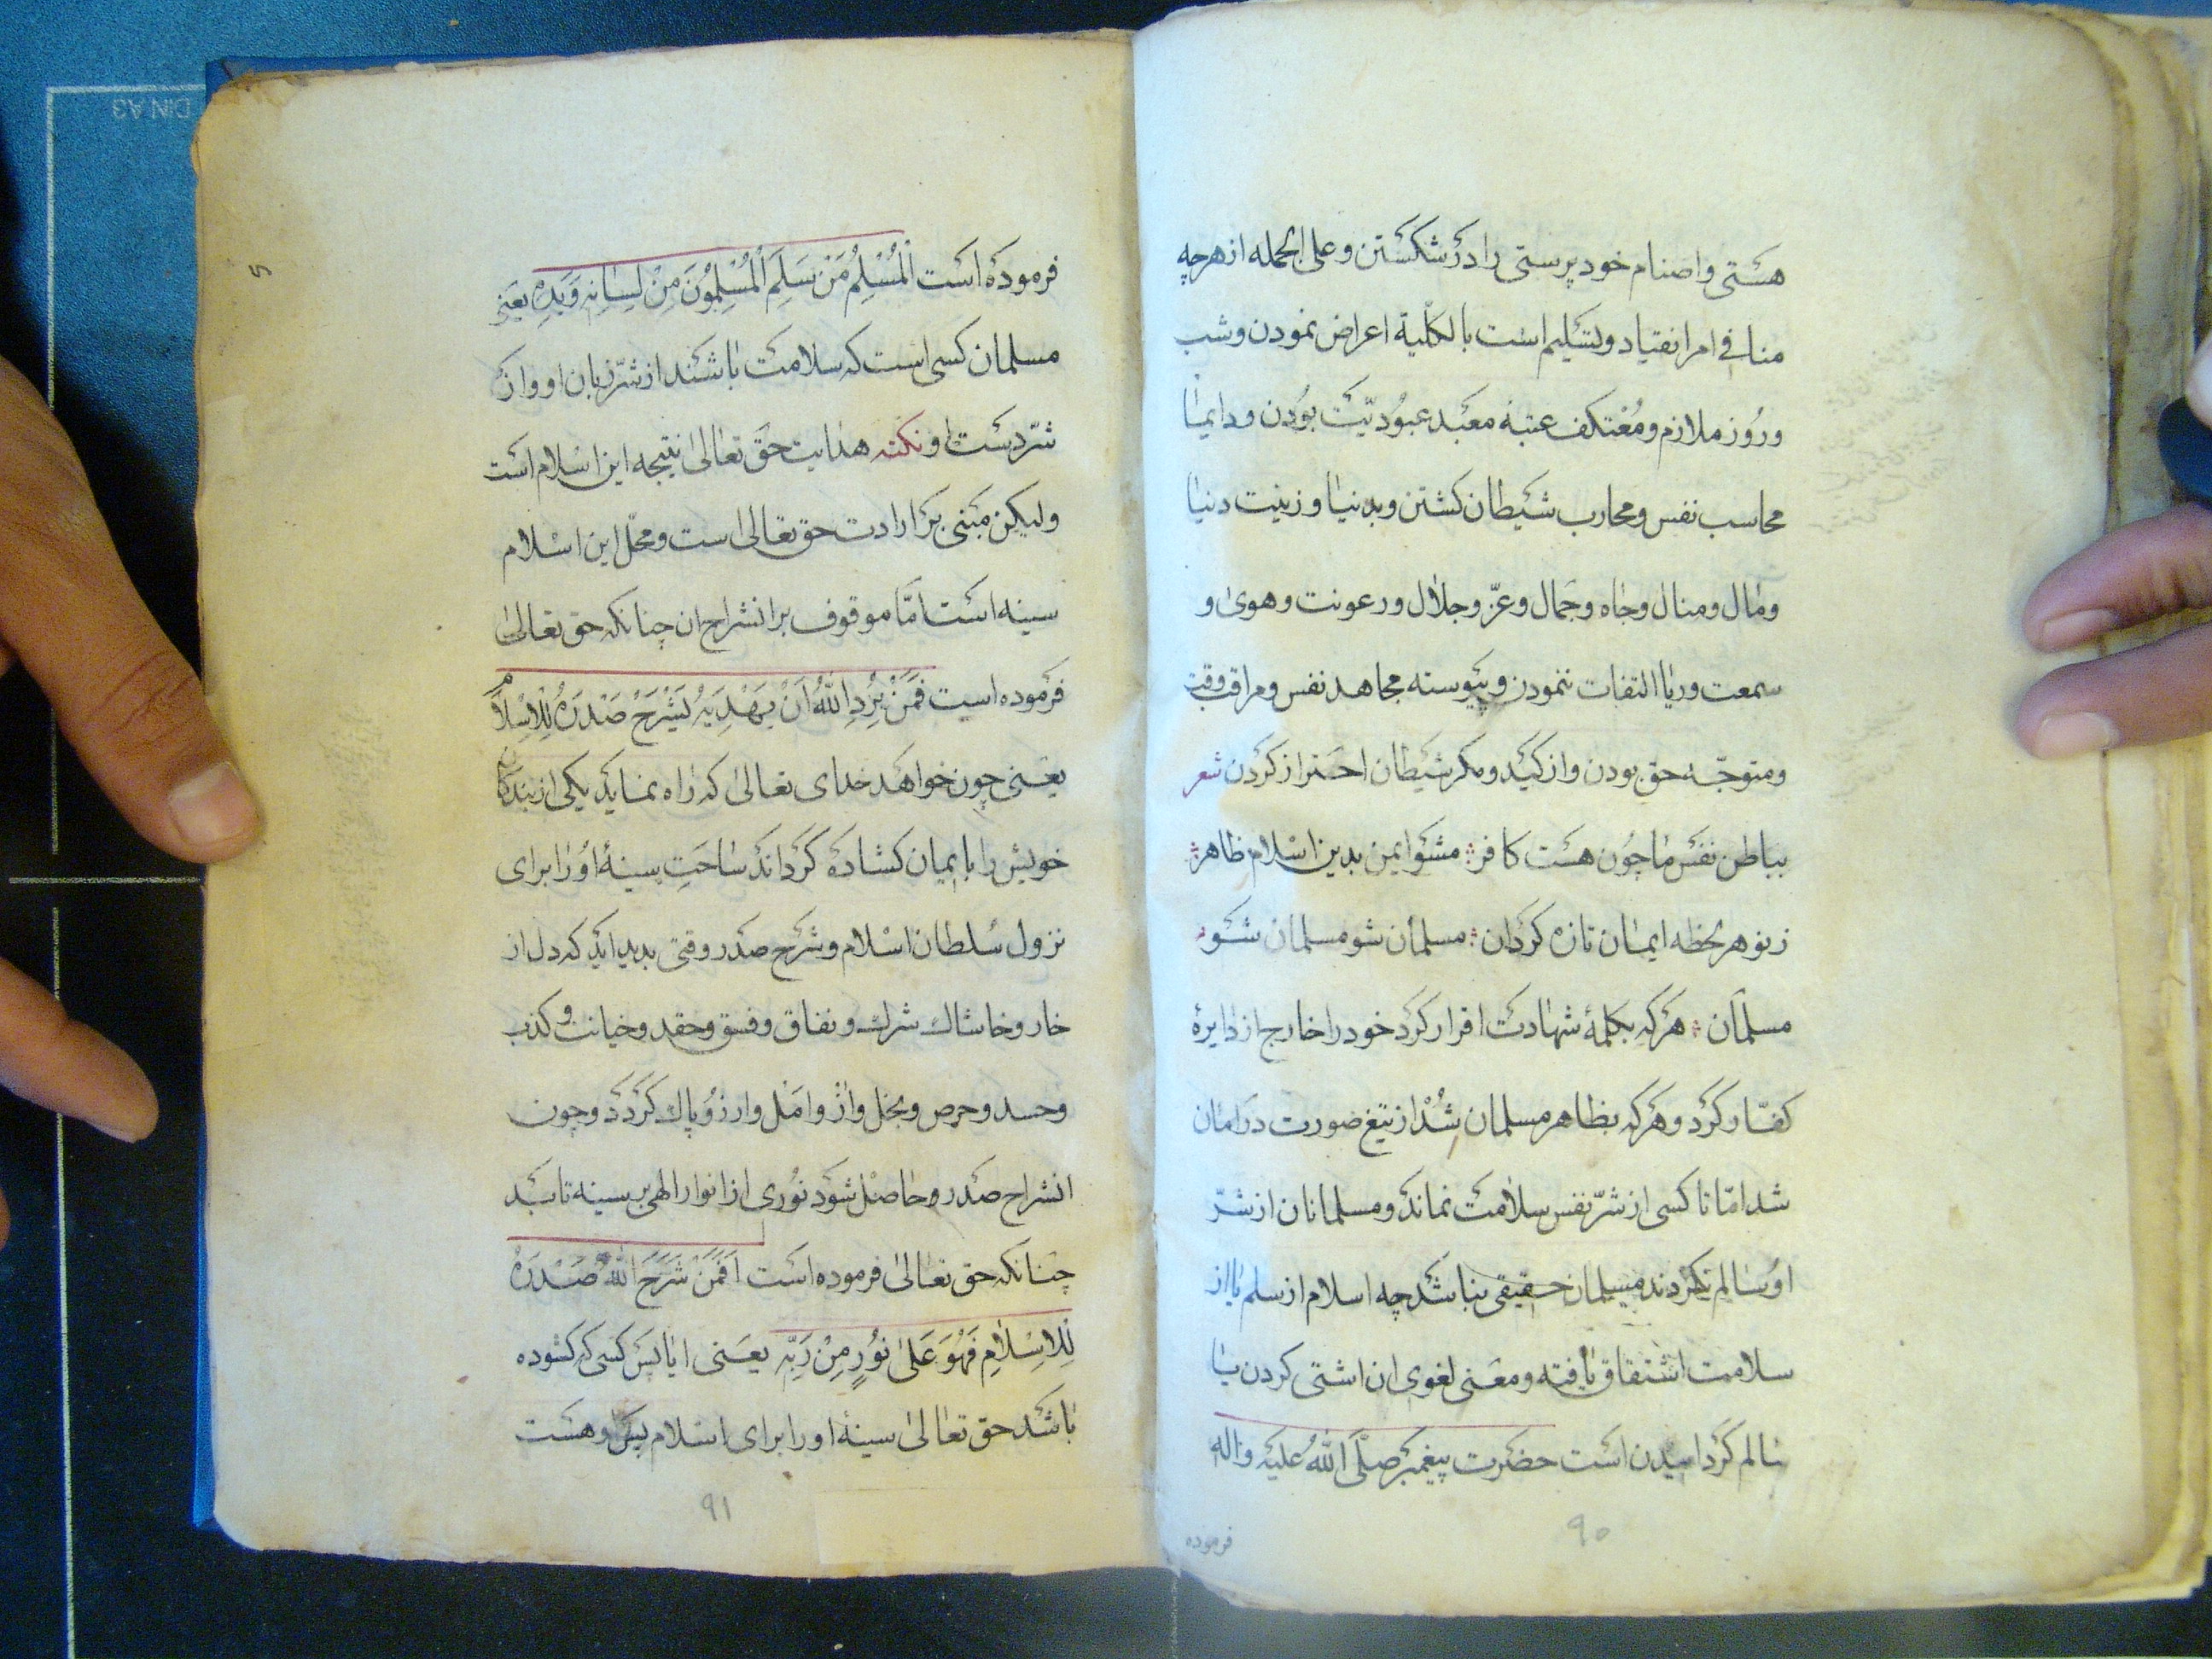 هستی و اصنام خود پرستی را در شکستن و علی الجمله از هرچه
منافی امر انقیاد و تسلیم است بالکلّیة اعراض نمودن و شب
و روز ملازم و مُعْتکف عتبۀ معبد عبودیّت بودن و دایما
محاسب نفس و محارب شیطان کشتن و بدنیا و زینت دنیا
و مال و منال و جاه و جمال و عزّ و جلال و رعونت و هوی و
سمعت و ریا التفات ننمودن و پیوسته مجاهد نفس و مراقب وقت
و متوجّه حق بودن و از کید و مکر شیطان احتراز کردن شعر
بباطن نفس ما چون هست کافر ؞ مشو ایمن بدین اسْلام ظاهر ؞
ز نو هر لحظه ایمان تازه کردان ؞ مسلمان شو مسلمان شو
مسلمان ؞ هر که بکلمۀ شهادت اقرار کرد خود را خارج از دایرۀ
کفّار کرد و هر که بظاهر مسلمان شُدْ از تیغ صورت در امان
شد امّا تا کسی از شرّ نفس سلامت نماند و مسلمانان از شرّ
او سالم نکردند مسلمان حقیقی نباشد چه اسلام از سلم یا از
سلامت اشتقاق یافته و معنی لغوی ان اشتی کردن یا
سالم کردانیدن است حضرت پیغمبر صلّی اللّٰه علیه واله
فرموده
۹۰
فرموده است اَلْمُسْلِمُ مَنْ سَلِمَ الْمُسْلِمُونَ مِنْ لِسِانِهِ وَيَدِهِ یعنی
مسلمان کسی است که سلامت باشند از شرّ زبان او و از
شرّ دست او نکته هدایت حق تعالیٰ نتیجه این اسلام است
ولیکن مبنی بر ارادت حق تعالی است و محلّ این اسْلام
سینه است امّا موقوف بر انشراح ان چنانکه حق تعالیٰ
فرموده است فَمَنْ يُرِدِ اللّٰهُ اَنْ يَهْدِيَهُ يَشْرَحْ صَدْرَهُ لِلْاِسْلَامِ
یعنی چون خواهد خدای تعالیٰ که راه نماید یکی از بندکان
خویش را بایمان کشاده کرداند ساحَتِ سینۀ او را برای
نزول سلطان اسْلام و شرح صدر وقتی بدید اید که دل از
خار و خاشاك شرك و نفاق و فسق و حقد و خیانت و کذب
و حسد و حرص و بخل و از و امل و ارزو پاك کردد و چون
انشراح صدر رو حاصل شود نوری از انوار الهی بر سینه تابد
چنانکه حق تعالیٰ فرموده است اَفَمَنْ شَرَحَ اللّٰهُ صَدْرَهُ
لِلْاِسْلَامِ فَهُوَ عَلىٰ نُورٍ مِنْ رَبِّهِ یعنی ایا پس کسی که کشوده
باشد حق تعالیٰ سینۀ او را برای اسلام پس او هست
۹۱